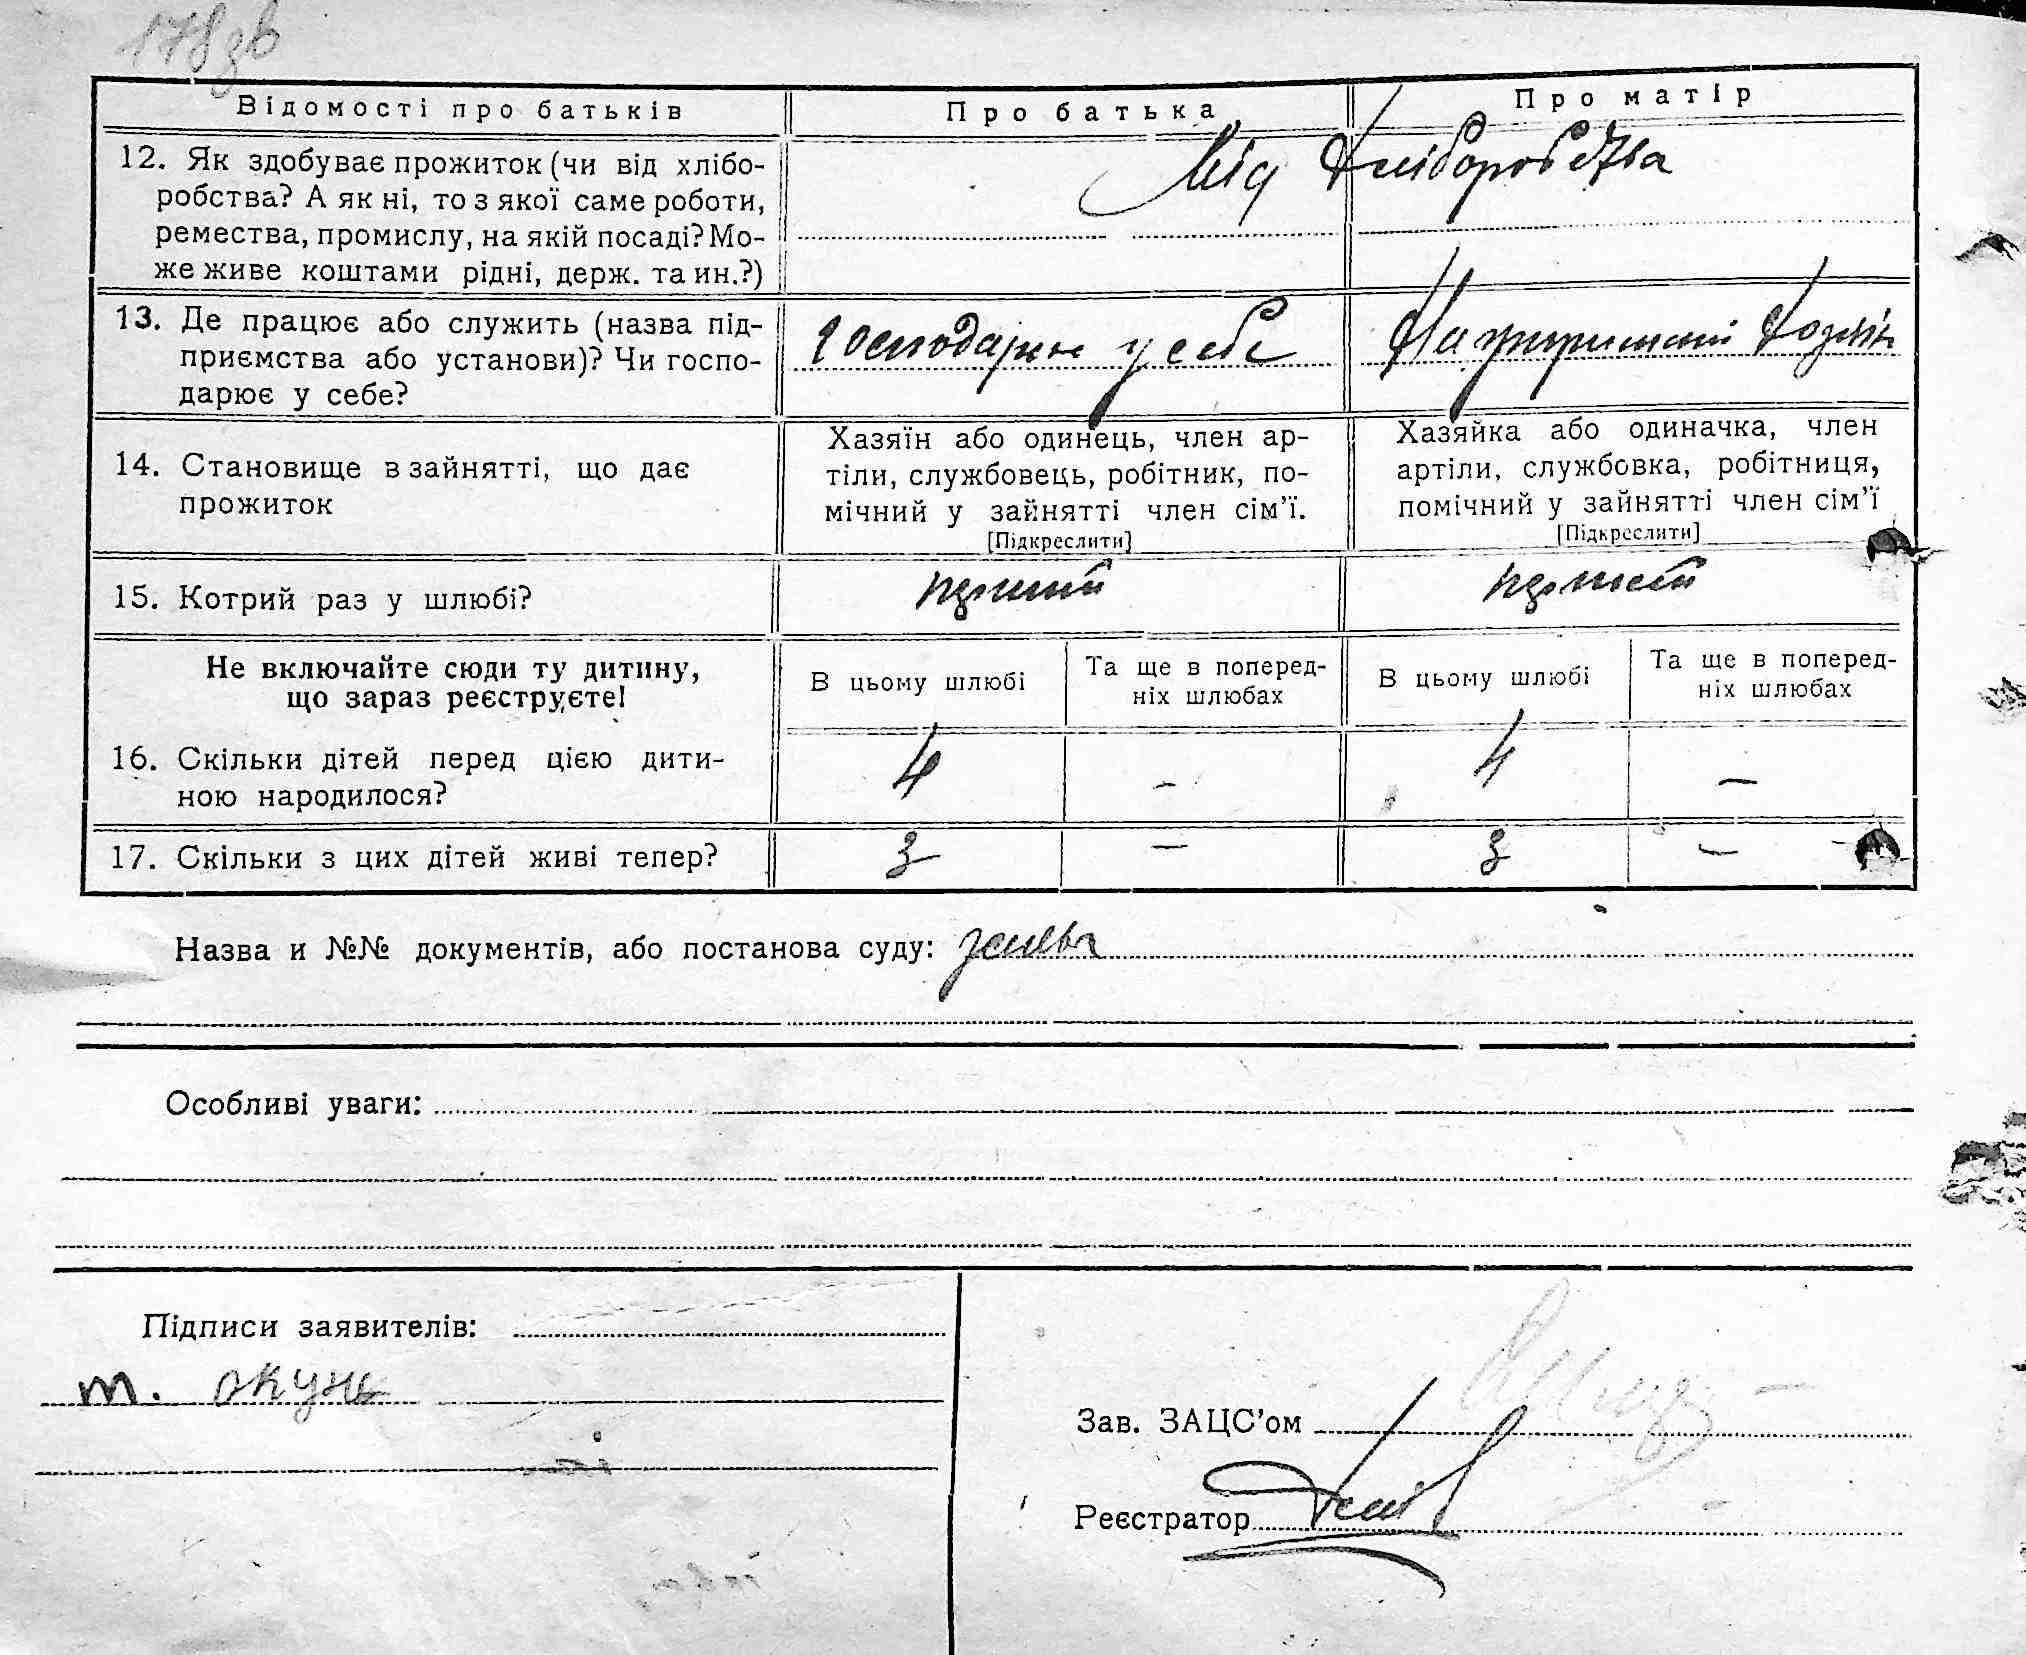 178зв
Відомості про батьків
Про батька
Про матір
12. Як здобуває прожиток (чи від хлібо-
робства? А як ні, то з якої саме роботи,
ремества, промислу, на якій посаді? Мо-
же живе коштами рідні, держ. та ин.?)
Від хліборобства
13. Де працює або служить (назва під-
приємства або установи)? Чи госпо-
дарює у себе?
Господарює у себе
На
14. Становище в зайнятті, що дає
прожиток
Хазяїн або одинець, член ар-
тіли, службовець, робітник, по-
мічний у зайнятті член сім'ї.
[Підкреслити]
Хазяйка або одиначка, член
артіли, службовка, робітниця,
помічний у зайнятті член сім'ї
[Підкреслити]
15. Котрий раз у шлюбі?
Не включайте сюди ту дитину,
що зараз реєструєте!
В цьому шлюбі
Та ще в поперед-
ніх шлюбах
В цьому шлюбі
Та ще в поперед-
ніх шлюбах
16. Скільки дітей перед цією дити-
ною народилося?
4 – 4 –
17. Скільки з цих дітей живі тепер?
3 – 3 –
Назва и №№ документів, або постанова суду:
Особливі уваги:
Підписи заявителів:
т. окунь
Зав. ЗАЦС'ом
Реєстратор